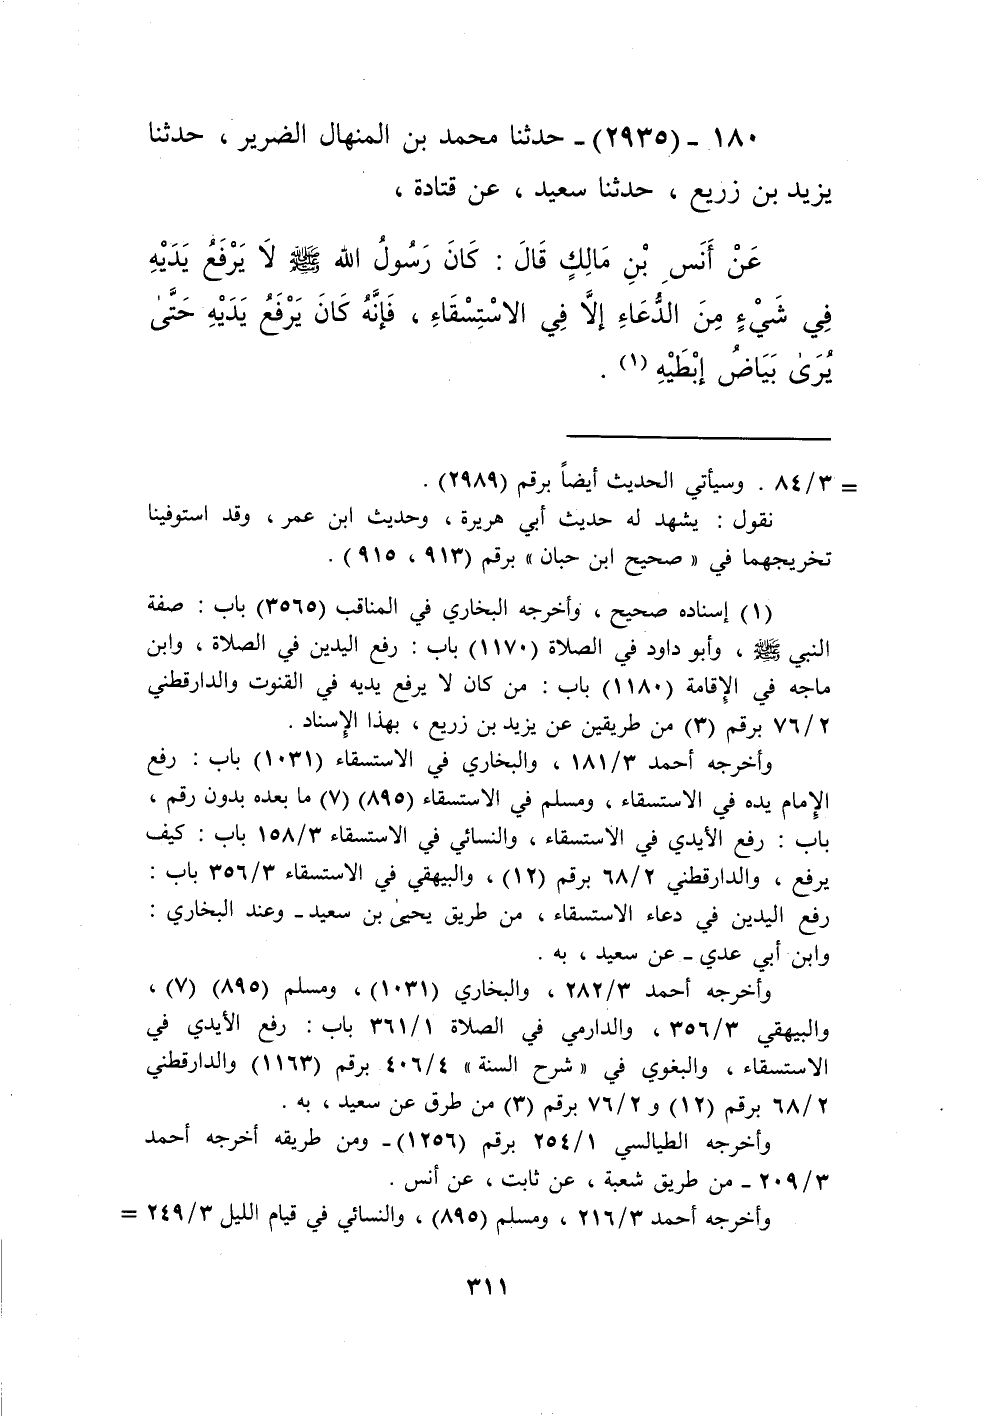 ١٨٠ ـ (٢٩٣٥) ـ حدثنا محمد بن المنهال الضرير ، حدثنا
يزيد بن زريع ، حدثنا سعيد ، عن قتادة ،
عَنْ أَنَسِ بْنِ مَالِكٍ قَالَ : كَانَ رَسُولُ الله ﷺ لَا يَرْفَعُ يَدَيْهِ
فِي شَيْءٍ مِنَ الدُّعَاءِ إلَّا فِي الاسْتِسْقَاءِ ، فَإِنَّهُ كَانَ يَرْفَعُ يَدَيْهِ حَتَّىٰ
يُرَىٰ بَيَاضُ إبْطَيْهِ (١) .
= ٨٤/٣ . وسيأتي الحديث أيضاً برقم (٢٩٨٩) .
نقول : يشهد له حديث أبي هريرة ، وحديث ابن عمر ، وقد استوفينا
تخريجهما في « صحيح ابن حبان » برقم (٩١٣ ، ٩١٥) .
(١) إسناده صحيح ، وأخرجه البخاري في المناقب (٣٥٦٥) باب : صفة
النبي ﷺ ، وأبو داود في الصلاة (١١٧٠) باب : رفع اليدين في الصلاة ، وابن
ماجه في الإقامة (١١٨٠) باب : من كان لا يرفع يديه في القنوت والدارقطني
٧٦/٢ برقم (٣) من طريقين عن يزيد بن زريع ، بهذا الإسناد .
وأخرجه أحمد ١٨١/٣ ، والبخاري في الاستسقاء (١٠٣١) باب : رفع
الإمام يده في الاستسقاء ، ومسلم في الاستسقاء (٨٩٥) (٧) ما بعده بدون رقم ،
باب : رفع الأيدي في الاستسقاء ، والنسائي في الاستسقاء ١٥٨/٣ باب : كيف
يرفع ، والدارقطني ٦٨/٢ برقم (١٢) ، والبيهقي في الاستسقاء ٣٥٦/٣ باب :
رفع اليدين في دعاء الاستسقاء ، من طريق يحيىٰ بن سعيد ـ وعند البخاري :
وابن أبي عدي ـ عن سعيد ، به .
وأخرجه أحمد ٢٨٢/٣ ، والبخاري (١٠٣١) ، ومسلم (٨٩٥) (٧) ،
والبيهقي ٣٥٦/٣ ، والدارمي في الصلاة ٣٦١/١ باب : رفع الأيدي في
الاستسقاء ، والبغوي في « شرح السنة » ٤٠٦/٤ برقم (١١٦٣) والدارقطني
٦٨/٢ برقم (١٢) و ٧٦/٢ برقم (٣) من طرق عن سعيد ، به .
وأخرجه الطيالسي ٢٥٤/١ برقم (١٢٥٦) ـ ومن طريقه أخرجه أحمد
٢٠٩/٣ ـ من طريق شعبة ، عن ثابت ، عن أنس .
وأخرجه أحمد ٢١٦/٣ ، ومسلم (٨٩٥) ، والنسائي في قيام الليل ٢٤٩/٣ =
٣١١